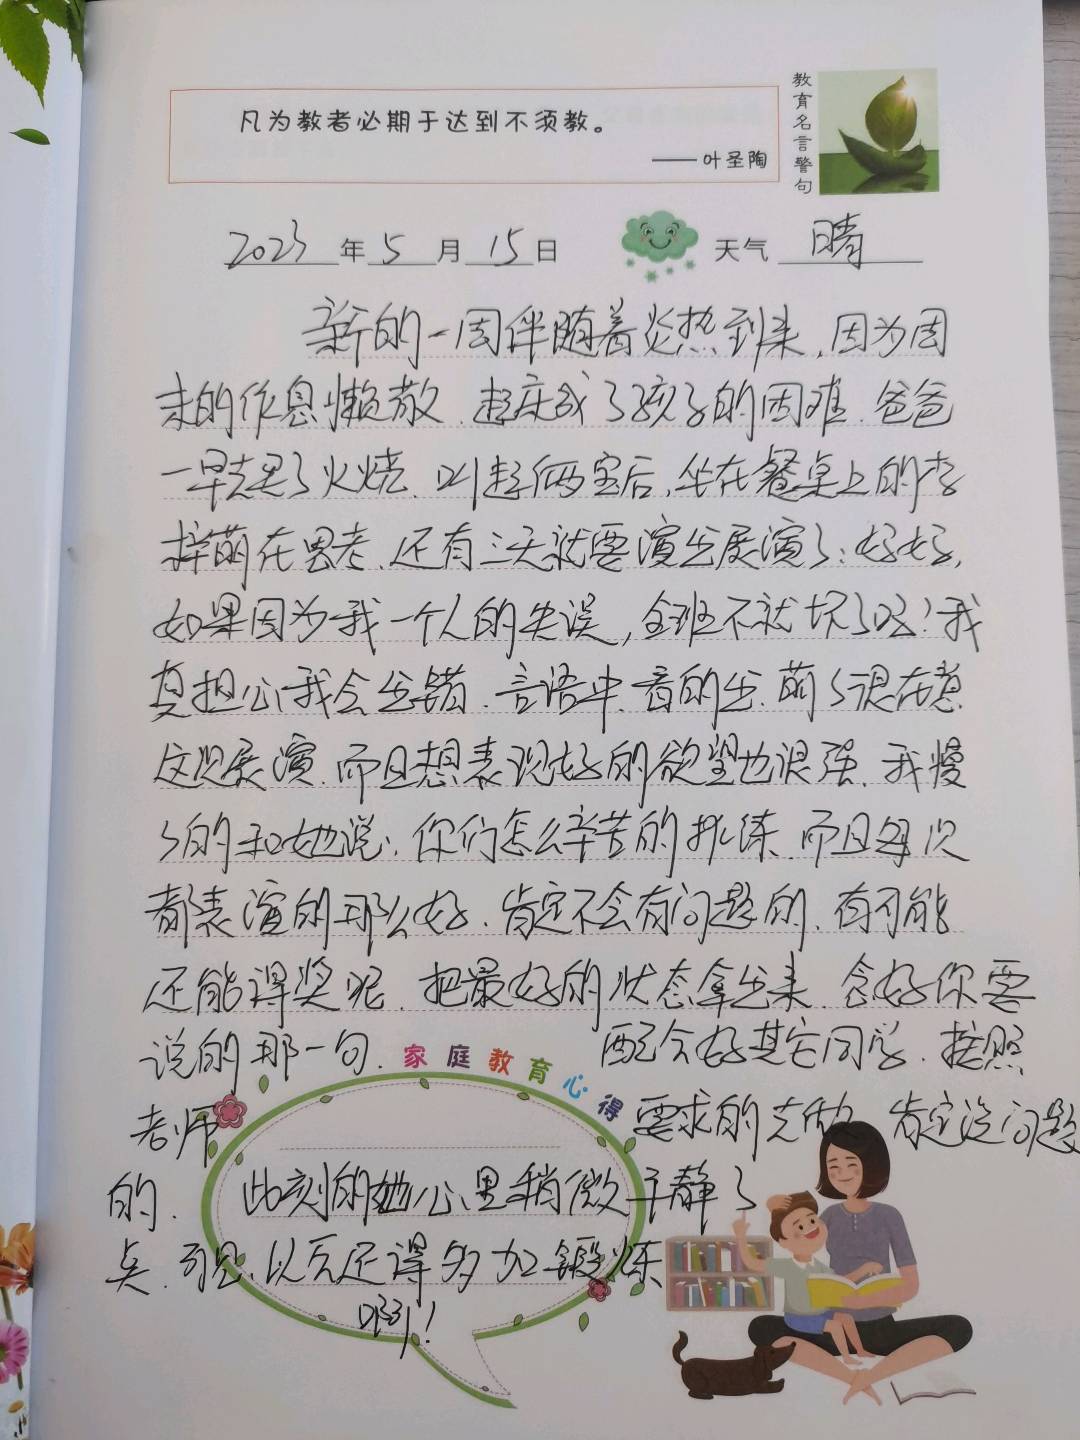 凡为教者必期于达到不须教。
——叶圣陶
教育名言警句
2023年5月15日 天气 晴
新的一周伴随着炎热到来,因为周
末的作息懒散.起床成了孩子的困难.爸爸
一早去买了火烧.叫起俩宝后,坐在餐桌上的李
梓萌在思考.还有三天就要演出展演了:好好,
如果因为我一个人的失误,全班不就坏了吗!我
真担心我会出错.言语中.看的出.萌了很在意
这次展演.而且想表现好的欲望也很强.我慢
了的和她说:你们怎么辛苦的排练.而且每次
都表演的那么好.肯定不会有问题的.有可能
还能得奖呢.把最好的状态拿出来.会好你要
说的那一句.配合好其它同学.按照
家庭教育心得
老师要求的去做.肯定没问题
的.此刻的她心里稍微平静了
点.可见.以后还得多加锻炼
啊!